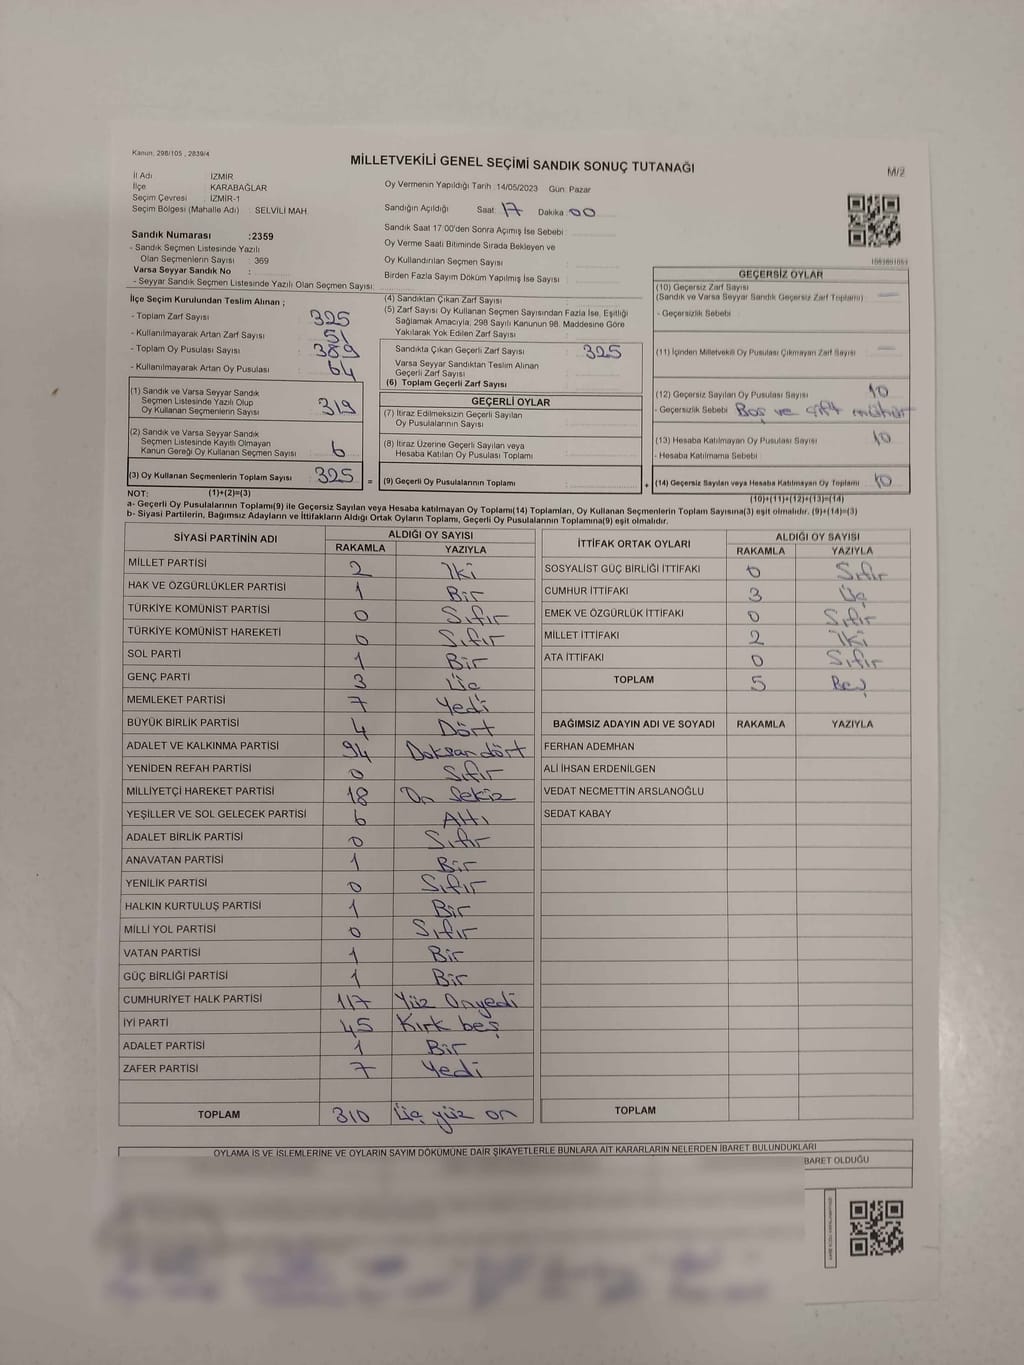 Kanun: 298/105 , 2839/4
MİLLETVEKİLİ GENEL SEÇİMİ SANDIK SONUÇ TUTANAĞI
M/2
İl Adı : İZMİR
İlçe : KARABAĞLAR
Seçim Çevresi : İZMİR-1
Seçim Bölgesi (Mahalle Adı) : SELVİLİ MAH.
Oy Vermenin Yapıldığı Tarih :14/05/2023 Gün: Pazar
Sandığın Açıldığı Saat: 17 Dakika: 00
Sandık Saat 17:00'den Sonra Açımış İse Sebebi :
Oy Verme Saati Bitiminde Sırada Bekleyen ve
Oy Kullandırılan Seçmen Sayısı :
Birden Fazla Sayım Döküm Yapılmış İse Sayısı :
Sandık Numarası :2359
- Sandık Seçmen Listesinde Yazılı
Olan Seçmenlerin Sayısı : 369
Varsa Seyyar Sandık No :
- Seyyar Sandık Seçmen Listesinde Yazılı Olan Seçmen Sayısı:
İlçe Seçim Kurulundan Teslim Alınan ;
- Toplam Zarf Sayısı : 325
- Kullanılmayarak Artan Zarf Sayısı : 51
- Toplam Oy Pusulası Sayısı : 389
- Kullanılmayarak Artan Oy Pusulası : 64
(1) Sandık ve Varsa Seyyar Sandık
Seçmen Listesinde Yazılı Olup
Oy Kullanan Seçmenlerin Sayısı : 319
(2) Sandık ve Varsa Seyyar Sandık
Seçmen Listesinde Kayıtlı Olmayan
Kanun Gereği Oy Kullanan Seçmen Sayısı : 6
(3) Oy Kullanan Seçmenlerin Toplam Sayısı : 325
(1)+(2)=(3)
(4) Sandıktan Çıkan Zarf Sayısı :
(5) Zarf Sayısı Oy Kullanan Seçmen Sayısından Fazla İse, Eşitliği
Sağlamak Amacıyla, 298 Sayılı Kanunun 98. Maddesine Göre
Yakılarak Yok Edilen Zarf Sayısı :
Sandıkta Çıkan Geçerli Zarf Sayısı : 325
Varsa Seyyar Sandıktan Teslim Alınan
Geçerli Zarf Sayısı :
(6) Toplam Geçerli Zarf Sayısı :
GEÇERLİ OYLAR
(7) İtiraz Edilmeksizin Geçerli Sayılan
Oy Pusulalarının Sayısı :
(8) İtiraz Üzerine Geçerli Sayılan veya
Hesaba Katılan Oy Pusulası Toplamı :
= (9) Geçerli Oy Pusulalarının Toplamı : +
GEÇERSİZ OYLAR
(10) Geçersiz Zarf Sayısı
(Sandık ve Varsa Seyyar Sandık Geçersiz Zarf Toplamı) : —
- Geçersizlik Sebebi :
(11) İçinden Milletvekili Oy Pusulası Çıkmayan Zarf Sayısı : —
(12) Geçersiz Sayılan Oy Pusulası Sayısı : 10
- Geçersizlik Sebebi : Boş ve çift mühür
(13) Hesaba Katılmayan Oy Pusulası Sayısı : 10
- Hesaba Katılmama Sebebi :
(14) Geçersiz Sayılan veya Hesaba Katılmayan Oy Toplamı : 10
(10)+(11)+(12)+(13)=(14)
NOT:
a- Geçerli Oy Pusulaları Toplamı(9) ile Geçersiz Sayılan veya Hesaba katılmayan Oy Toplamı(14) Toplamları, Oy Kullanan Seçmenlerin Toplam Sayısına(3) eşit olmalıdır. (9)+(14)=(3)
b- Siyasi Partilerin, Bağımsız Adayların ve İttifakların Aldığı Ortak Oyların Toplamı, Geçerli Oy Pusulalarının Toplamına(9) eşit olmalıdır.
SİYASİ PARTİNİN ADI ALDIĞI OY SAYISI
RAKAMLA YAZIYLA
MİLLET PARTİSİ 2 İki
HAK VE ÖZGÜRLÜKLER PARTİSİ 1 Bir
TÜRKİYE KOMÜNİST PARTİSİ 0 Sıfır
TÜRKİYE KOMÜNİST HAREKETİ 0 Sıfır
SOL PARTİ 1 Bir
GENÇ PARTİ 3 Üç
MEMLEKET PARTİSİ 7 Yedi
BÜYÜK BİRLİK PARTİSİ 4 Dört
ADALET VE KALKINMA PARTİSİ 94 Doksan dört
YENİDEN REFAH PARTİSİ 0 Sıfır
MİLLİYETÇİ HAREKET PARTİSİ 18 On Sekiz
YEŞİLLER VE SOL GELECEK PARTİSİ 6 Altı
ADALET BİRLİK PARTİSİ 0 Sıfır
ANAVATAN PARTİSİ 1 Bir
YENİLİK PARTİSİ 0 Sıfır
HALKIN KURTULUŞ PARTİSİ 1 Bir
MİLLİ YOL PARTİSİ 0 Sıfır
VATAN PARTİSİ 1 Bir
GÜÇ BİRLİĞİ PARTİSİ 1 Bir
CUMHURİYET HALK PARTİSİ 117 Yüz Onyedi
İYİ PARTİ 45 Kırk beş
ADALET PARTİSİ 1 Bir
ZAFER PARTİSİ 7 Yedi
TOPLAM 310 Üç yüz on
İTTİFAK ORTAK OYLARI ALDIĞI OY SAYISI
RAKAMLA YAZIYLA
SOSYALİST GÜÇ BİRLİĞİ İTTİFAKI 0 Sıfır
CUMHUR İTTİFAKI 3 Üç
EMEK VE ÖZGÜRLÜK İTTİFAKI 0 Sıfır
MİLLET İTTİFAKI 2 İki
ATA İTTİFAKI 0 Sıfır
TOPLAM 5 Beş
BAĞIMSIZ ADAYIN ADI VE SOYADI RAKAMLA YAZIYLA
FERHAN ADEMHAN
ALİ İHSAN ERDENİLGEN
VEDAT NECMETTİN ARSLANOĞLU
SEDAT KABAY
TOPLAM
OYLAMA İŞ VE İŞLEMLERİNE VE OYLARIN SAYIM DÖKÜMÜNE DAİR ŞİKAYETLERLE BUNLARA AİT KARARLARIN NELERDEN İBARET BULUNDUKLARI
BARET OLDUĞU